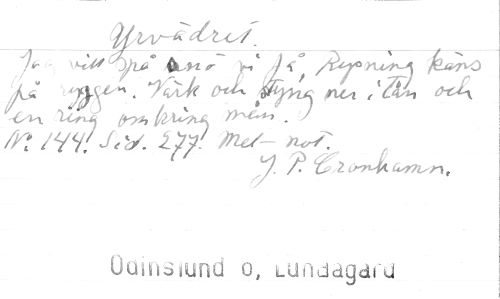 Yrvädret.
Jag vill spå snö vi få, Rysning käns
på ryggen. Värk och styng ner i tån och
en ring omkring mån.
N: 144. Sid. 277. Mel- not.
J. P. Cronhamn.
Odinslund o, Lundagård